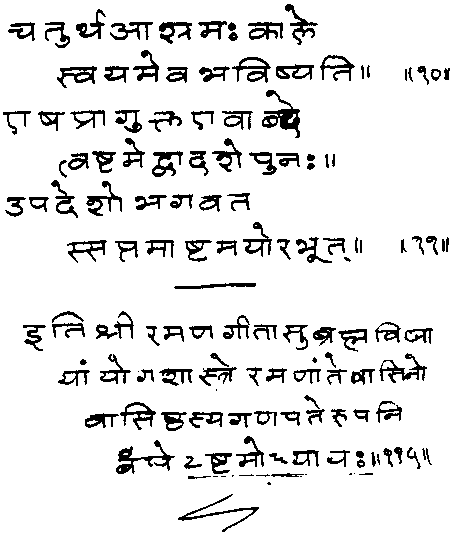 चतुर्थआश्रमः काले
स्वयमेव भविष्यति॥ ॥१०॥
एष प्रागुक्त एवाब्दे
त्वष्टमे द्वादशे पुनः॥
उपदेशो भगवत
स्सप्तमाष्टमयोरभूत्॥ ॥११॥
इति श्री रमणगीतासु ब्रह्मविद्या
यां योगशास्त्रे रमणांतेवासिनो
वासिष्ठस्य गणपतेरुपनि
बंधे ऽष्टमोऽध्यायः॥११५॥